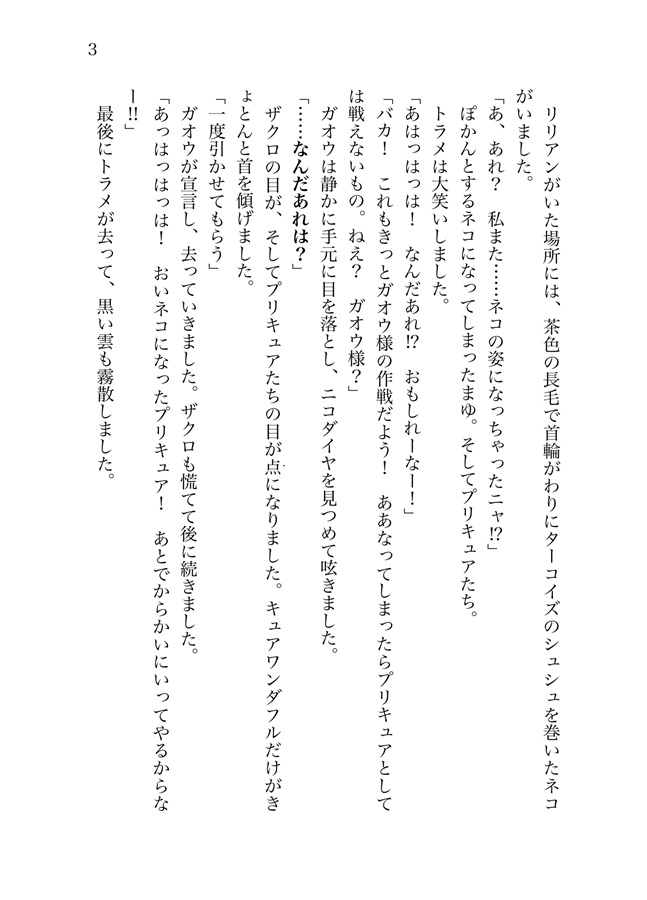 3
　リリアンがいた場所には、茶色の長毛で首輪がわりにターコイズのシュシュを巻いたネコ
がいました。
「あ、あれ？　私また……ネコの姿になっちゃったニャ!?」
　ぽかんとするネコになってしまったまゆ。そしてプリキュアたち。
　トラメは大笑いしました。
「あはっはっは！　なんだあれ!?　おもしれーなー！」
「バカ！　これもきっとガオウ様の作戦だよう！　ああなってしまったらプリキュアとして
は戦えないもの。ねえ？　ガオウ様？」
　ガオウは静かに手元に目を落とし、ニコダイヤを見つめて呟きました。
「……なんだあれは？」
　ザクロの目が、そしてプリキュアたちの目が点になりました。キュアワンダフルだけがき
ょとんと首を傾げました。
「一度引かせてもらう」
　ガオウが宣言し、去っていきました。ザクロも慌てて後に続きました。
「あっはっはっは！　おいネコになったプリキュア！　あとでからかいにいってやるからな
ー!!」
　最後にトラメが去って、黒い雲も霧散しました。